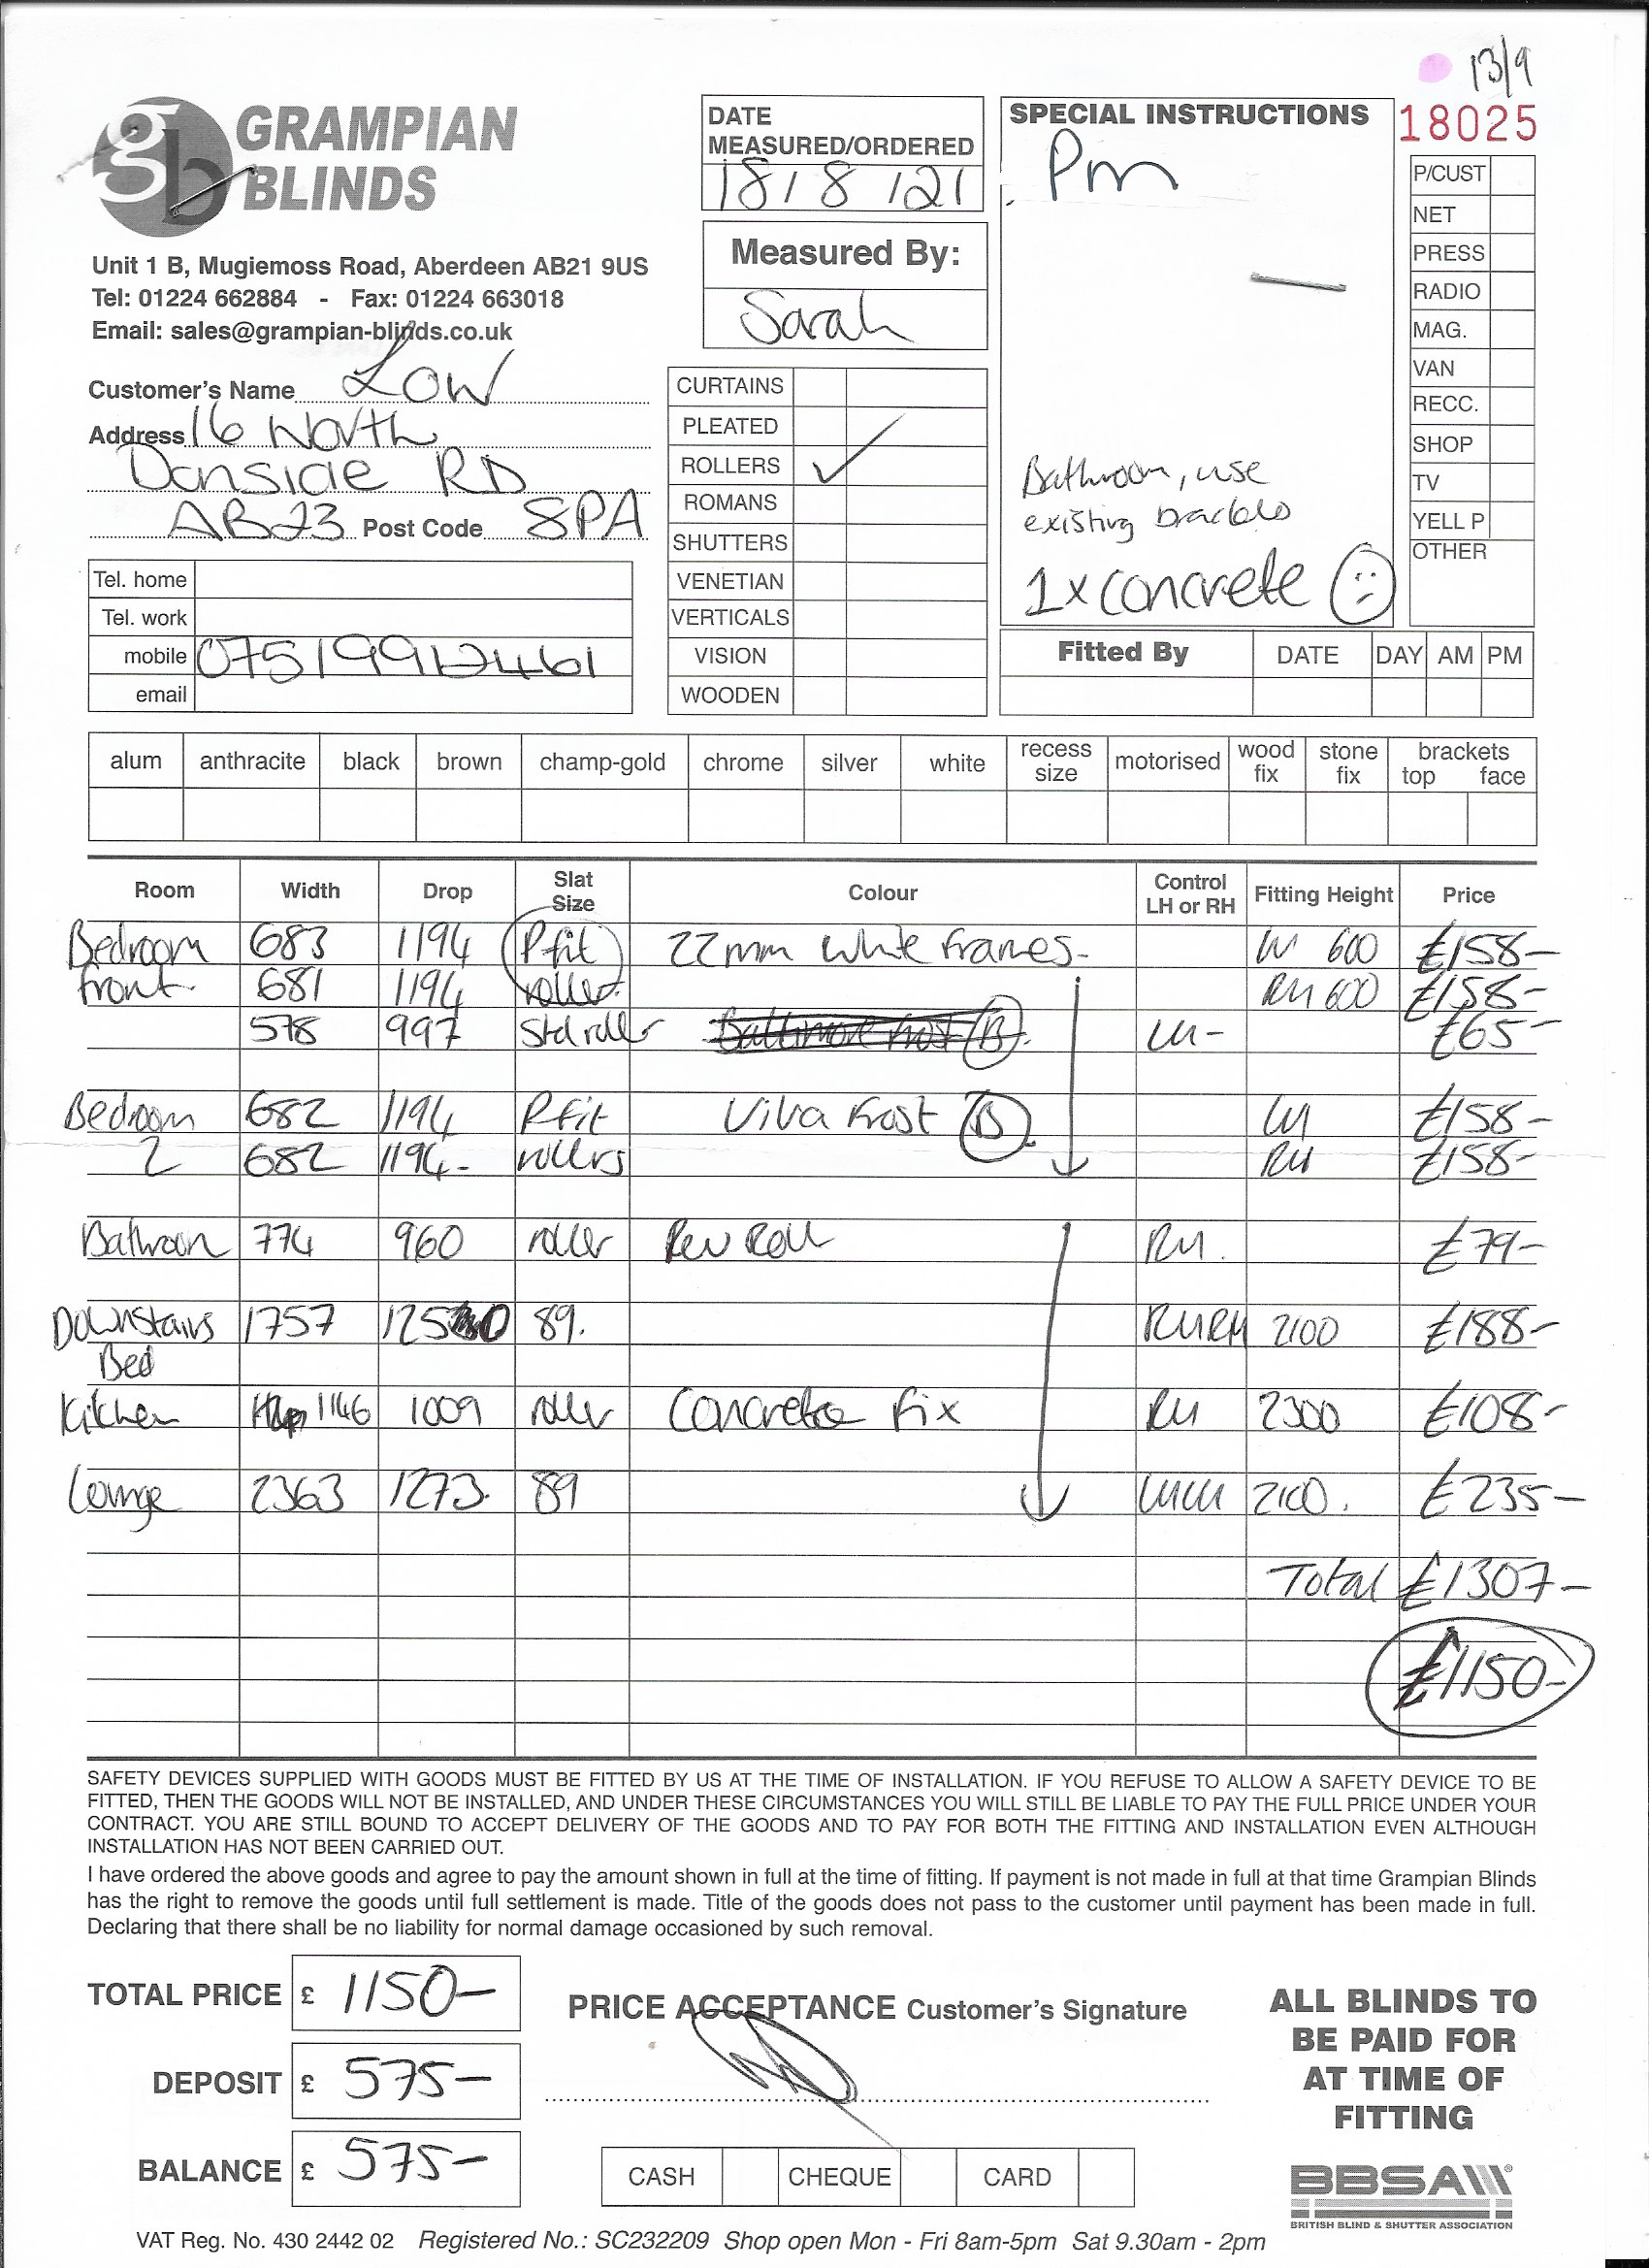 13/9
GRAMPIAN
BLINDS
gb
Unit 1 B, Mugiemoss Road, Aberdeen AB21 9US
Tel: 01224 662884 - Fax: 01224 663018
Email: sales@grampian-blinds.co.uk
Customer's Name Low
Address 16 North
Donside RD
AB23 Post Code 8PA
Tel. home
Tel. work
mobile
email
DATE
MEASURED/ORDERED
18/8/21
Measured By:
Sarah
CURTAINS
PLEATED
ROLLERS ✓
ROMANS
SHUTTERS
VENETIAN
VERTICALS
VISION
WOODEN
SPECIAL INSTRUCTIONS
Pm
Bathroom, use
existing brackets
1x concrete
18025
P/CUST
NET
PRESS
RADIO
MAG.
VAN
RECC.
SHOP
TV
YELL P
OTHER
Fitted By DATE DAY AM PM
alum anthracite black brown champ-gold chrome silver white recess size motorised wood fix stone fix brackets top face
Room Width Drop Slat Size Colour Control LH or RH Fitting Height Price
Bedroom 683 1194 Pfit 22mm white frames- LH 600 £158-
front 681 1194 roller RH 600 £158-
578 997 Std roller LH- £65-
Bedroom 682 1194 Pfit Viva Frost B LH £158-
2 682 1194- rollers RH £158-
Bathroom 774 960 roller Rev Roll RH. £79-
Downstairs 1757 1250 89. RHRH 2100 £188-
Bed
Kitchen 1146 1009 roller Concrete fix RH 2300 £108-
Lounge 2363 1273. 89 LHLH 2100. £235-
Total £1307-
£1150-
SAFETY DEVICES SUPPLIED WITH GOODS MUST BE FITTED BY US AT THE TIME OF INSTALLATION. IF YOU REFUSE TO ALLOW A SAFETY DEVICE TO BE
FITTED, THEN THE GOODS WILL NOT BE INSTALLED, AND UNDER THESE CIRCUMSTANCES YOU WILL STILL BE LIABLE TO PAY THE FULL PRICE UNDER YOUR
CONTRACT. YOU ARE STILL BOUND TO ACCEPT DELIVERY OF THE GOODS AND TO PAY FOR BOTH THE FITTING AND INSTALLATION EVEN ALTHOUGH
INSTALLATION HAS NOT BEEN CARRIED OUT.
I have ordered the above goods and agree to pay the amount shown in full at the time of fitting. If payment is not made in full at that time Grampian Blinds
has the right to remove the goods until full settlement is made. Title of the goods does not pass to the customer until payment has been made in full.
Declaring that there shall be no liability for normal damage occasioned by such removal.
TOTAL PRICE £ 1150-
DEPOSIT £ 575-
BALANCE £ 575-
PRICE ACCEPTANCE Customer's Signature
CASH CHEQUE CARD
ALL BLINDS TO
BE PAID FOR
AT TIME OF
FITTING
BBSA
BRITISH BLIND & SHUTTER ASSOCIATION
VAT Reg. No. 430 2442 02 Registered No.: SC232209 Shop open Mon - Fri 8am-5pm Sat 9.30am - 2pm